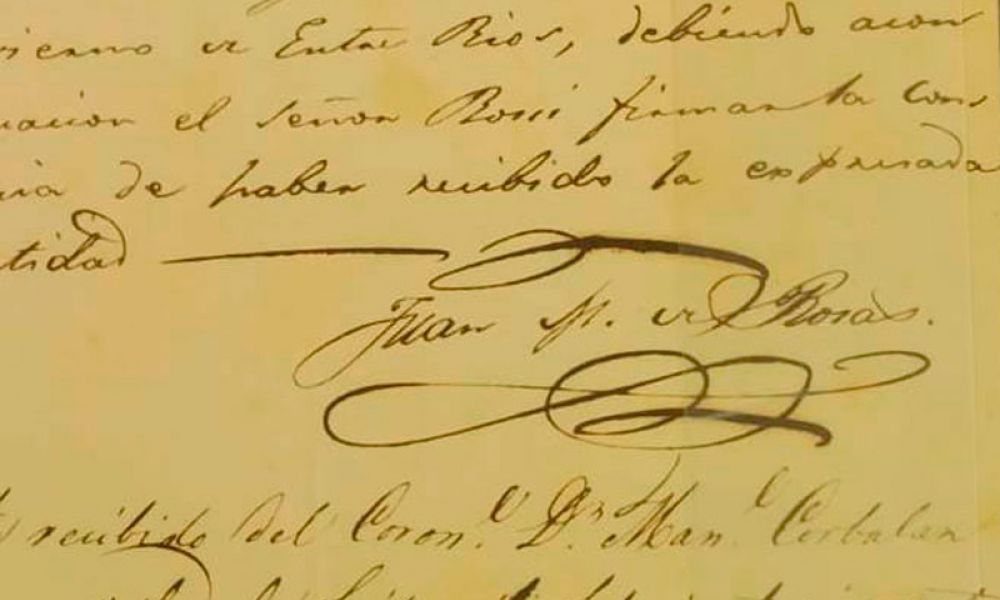 vierno de Entre Rios, debiendo acon
uacion el señor Rossi firmar la cons
cia de haber recibido la expresada
tidad
Juan M. de Rosas.
recibido del Coron.l D.n Man.l Corbalan